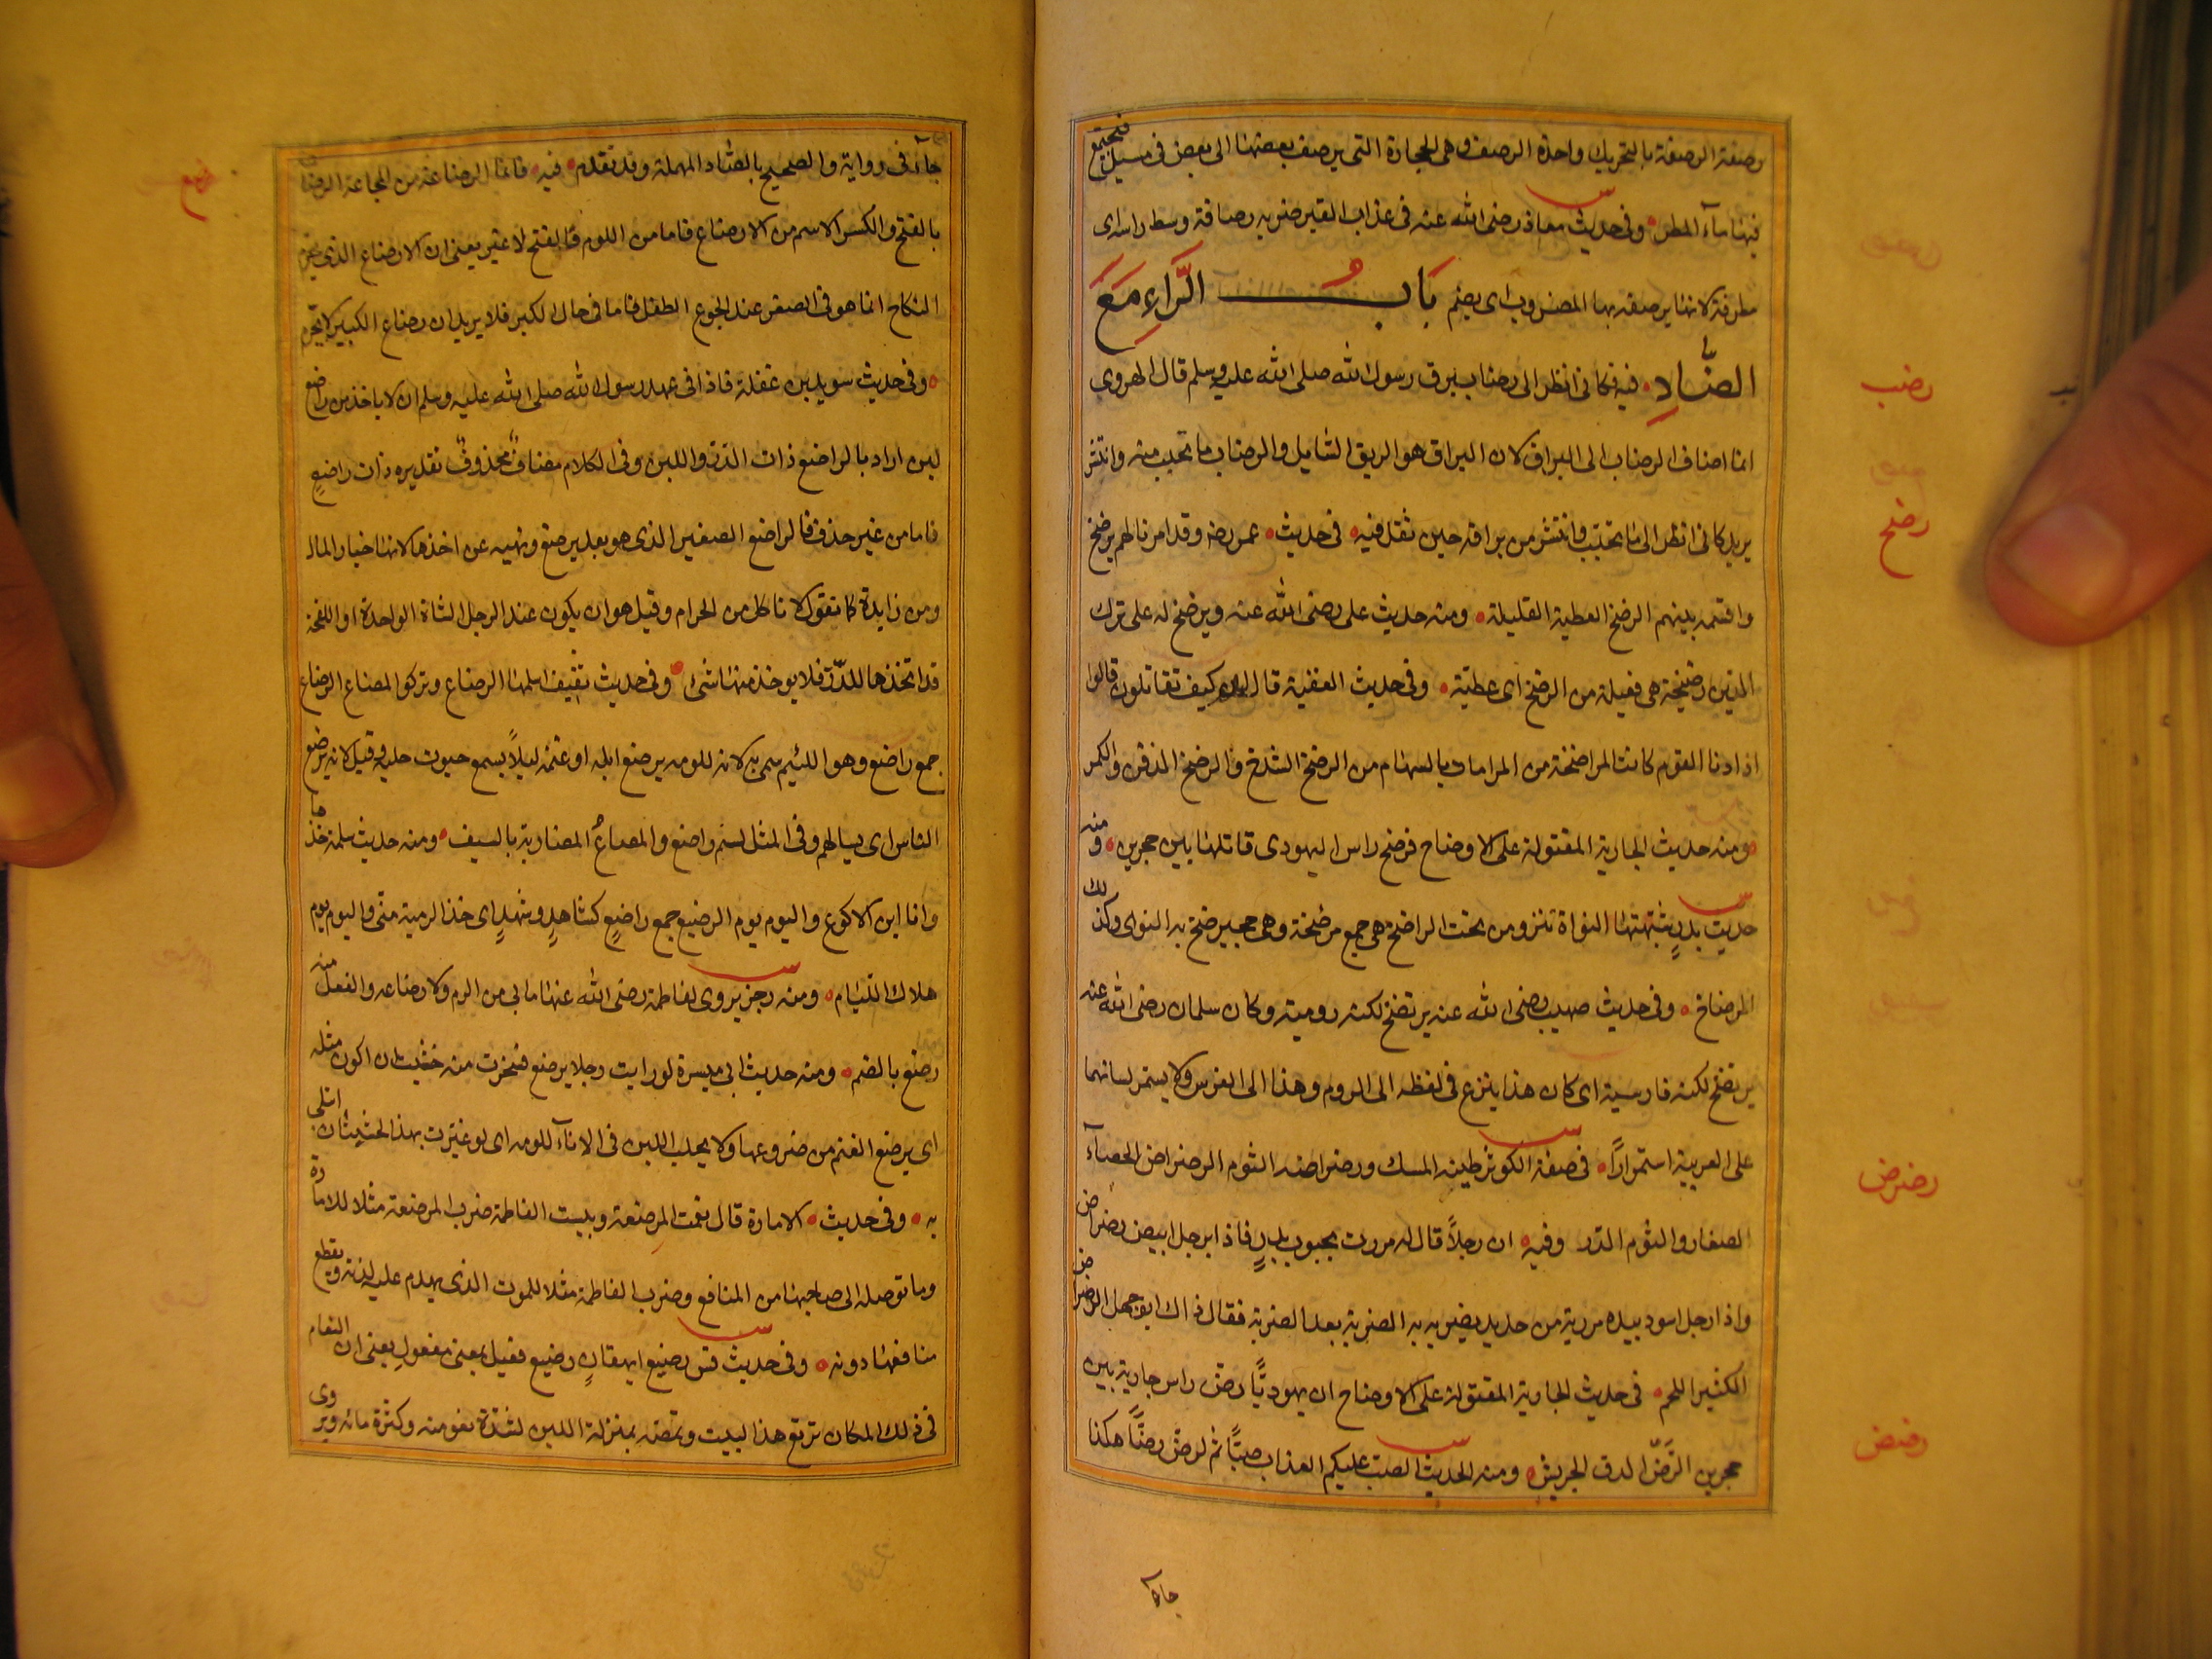 رصفة الرصفة بالتحريك واحدة الرصف وهى الحجارة التى يرصف بعضها الى بعض فى مسيل فيجتمع
فيها ماء المطر وفى حديث معاذ رضى الله عنه فى عذاب القبر ضربه بمرصافة وسط راسه اى
مطرقة لانها يرصف بها المضروب اى يضم باب الراء مع
الضاد فيه فكانى انظر الى رضاب بزاق رسول الله صلى الله عليه وسلم قال الهروى
رضب
انما اضاف الرضاب الى البزاق لان البزاق هو الريق السايل والرضاب ما تحبب منه وانتشر
يريد كانى انظر الى ما تحبب وانتشر من بزاقه حين تفل فيه فى حديث عمر رضه وقد امرنا لهم برضخ
رضخ
واقسمه بينهم الرضخ العطية القليلة ومنه حديث على رضى الله عنه ويرضخ له على ترك
الدين رضيخة هى فعيلة من الرضخ اى عطية وفى حديث العقبة قال لهم كيف تقاتلون قالوا
اذا دنا القوم كانت المراضخة هى المراماة بالسهام من الرضخ الشدخ والرضخ الدق والكسر
ومنه حديث الجارية المقتولة على الاوضاح فرضخ راس اليهودى قاتلها بين حجرين ومنه
حديث بدر شبهتها النواة تنزو من تحت المراضخ هى جمع مرضخة وهى حجر يرضخ به النوى وكذلك
المرضاخ وفى حديث صهيب رضى الله عنه يرتضخ لكنة رومية وكان سلمان رضى الله عنه
يرتضخ لكنة فارسية اى كان هذا ينزع فى لفظه الى الروم وهذا الى الفرس ولا يستمر لسانهما
على العربية استمرارًا فى صفة الكوثر طينه المسك ورضراضه التوم الرضراض الحصاء
رضرض
الصغار والتوم الدر وفيه ان رجلاً قال له مررت بجبوب بدرٍ فاذا برجل ابيض رضراض
واذا رجل اسود بيده مرزبة من حديد يضربه به الضربة بعد الضربة فقال ذاك ابو جهل الرضراض
الكثير اللحم فى حديث الجارية المقتولة على الاوضاح ان يهوديًا رض راس جارية بين
حجرين الرض الدق الجريش ومنه الحديث لصب عليكم العذاب صبًا ثم لرض رضًا هكذا
رضض
جاء
جاء فى رواية والصحيح بالصاد المهملة وقد تقدم فيه فانما الرضاعة من المجاعة الرضاعة
رضع
بالفتح والكسر الاسم من الارضاع فاما من اللوم فالفتح لا غير يعنى ان الارضاع الذى يحرم
النكاح انما هو فى الصغر عند جوع الطفل فاما فى حال الكبر فلا يريد ان رضاع الكبير لا يحرم
وفى حديث سويد بن غفلة فاذا فى عهد رسول الله صلى الله عليه وسلم ان لا ياخذ من راضع
لبن اراد بالراضع ذات الدر واللبن وفى الكلام مضاف محذوف تقديره ذات راضع
فاما من غير حذف فالراضع الصغير الذى هو بعد يرضع ونهيه عن اخذها لانها خيار المال
ومن زايدة كما تقول لا تاكل من الحرام وقيل هو ان يكون عند الرجل الشاة الواحدة او اللقحة
قد اتخذها للدر فلا يوخذ منها شى وفى حديث ثقيف اسلمها الرضاع وتركوا المصاع الرضاع
جمع راضع وهو اللئيم سمى به لانه للومه يرضع ابله او غنمه ليلاً ليسمع صوت حلبه وقيل لانه يرضع
الناس اى يسالهم وفى المثل لئيم راضع والمصاع المضاربة بالسيف ومنه حديث سلمة خذها
وانا ابن الاكوع واليوم يوم الرضع جمع راضع كشاهد وشهد اى خذ الرمية منى واليوم يوم
هلاك اللئام ومنه رجز يروى لفاطمة رضى الله عنها ما بى من لوم ولا رضاعه والفعل منه
رضع بالضم ومنه حديث ابى ميسرة لو رايت رجلا يرضع فسخرت منه خشيت ان اكون مثله
اى يرضع الغنم من ضروعها ولا يحلب اللبن فى الاناء للومه اى لو عيرت بهذا لخشيت ان ابتلى
به وفى حديث الامارة قال نعمت المرضعة وبئست الفاطمة ضرب المرضعة مثلا للامارة
وما توصله الى صاحبها من المنافع وضرب الفاطمة مثلا للموت الذى يهدم عليه لذته ويقطع
منافعها دونه وفى حديث قس رضيع ايهقان رضيع فعيل بمعنى مفعول يعنى ان النعام
فى ذلك المكان ترتع هذا لبيت وتمصه بمنزلة اللبن لشدة نعومته وكثرة مائه ويروى